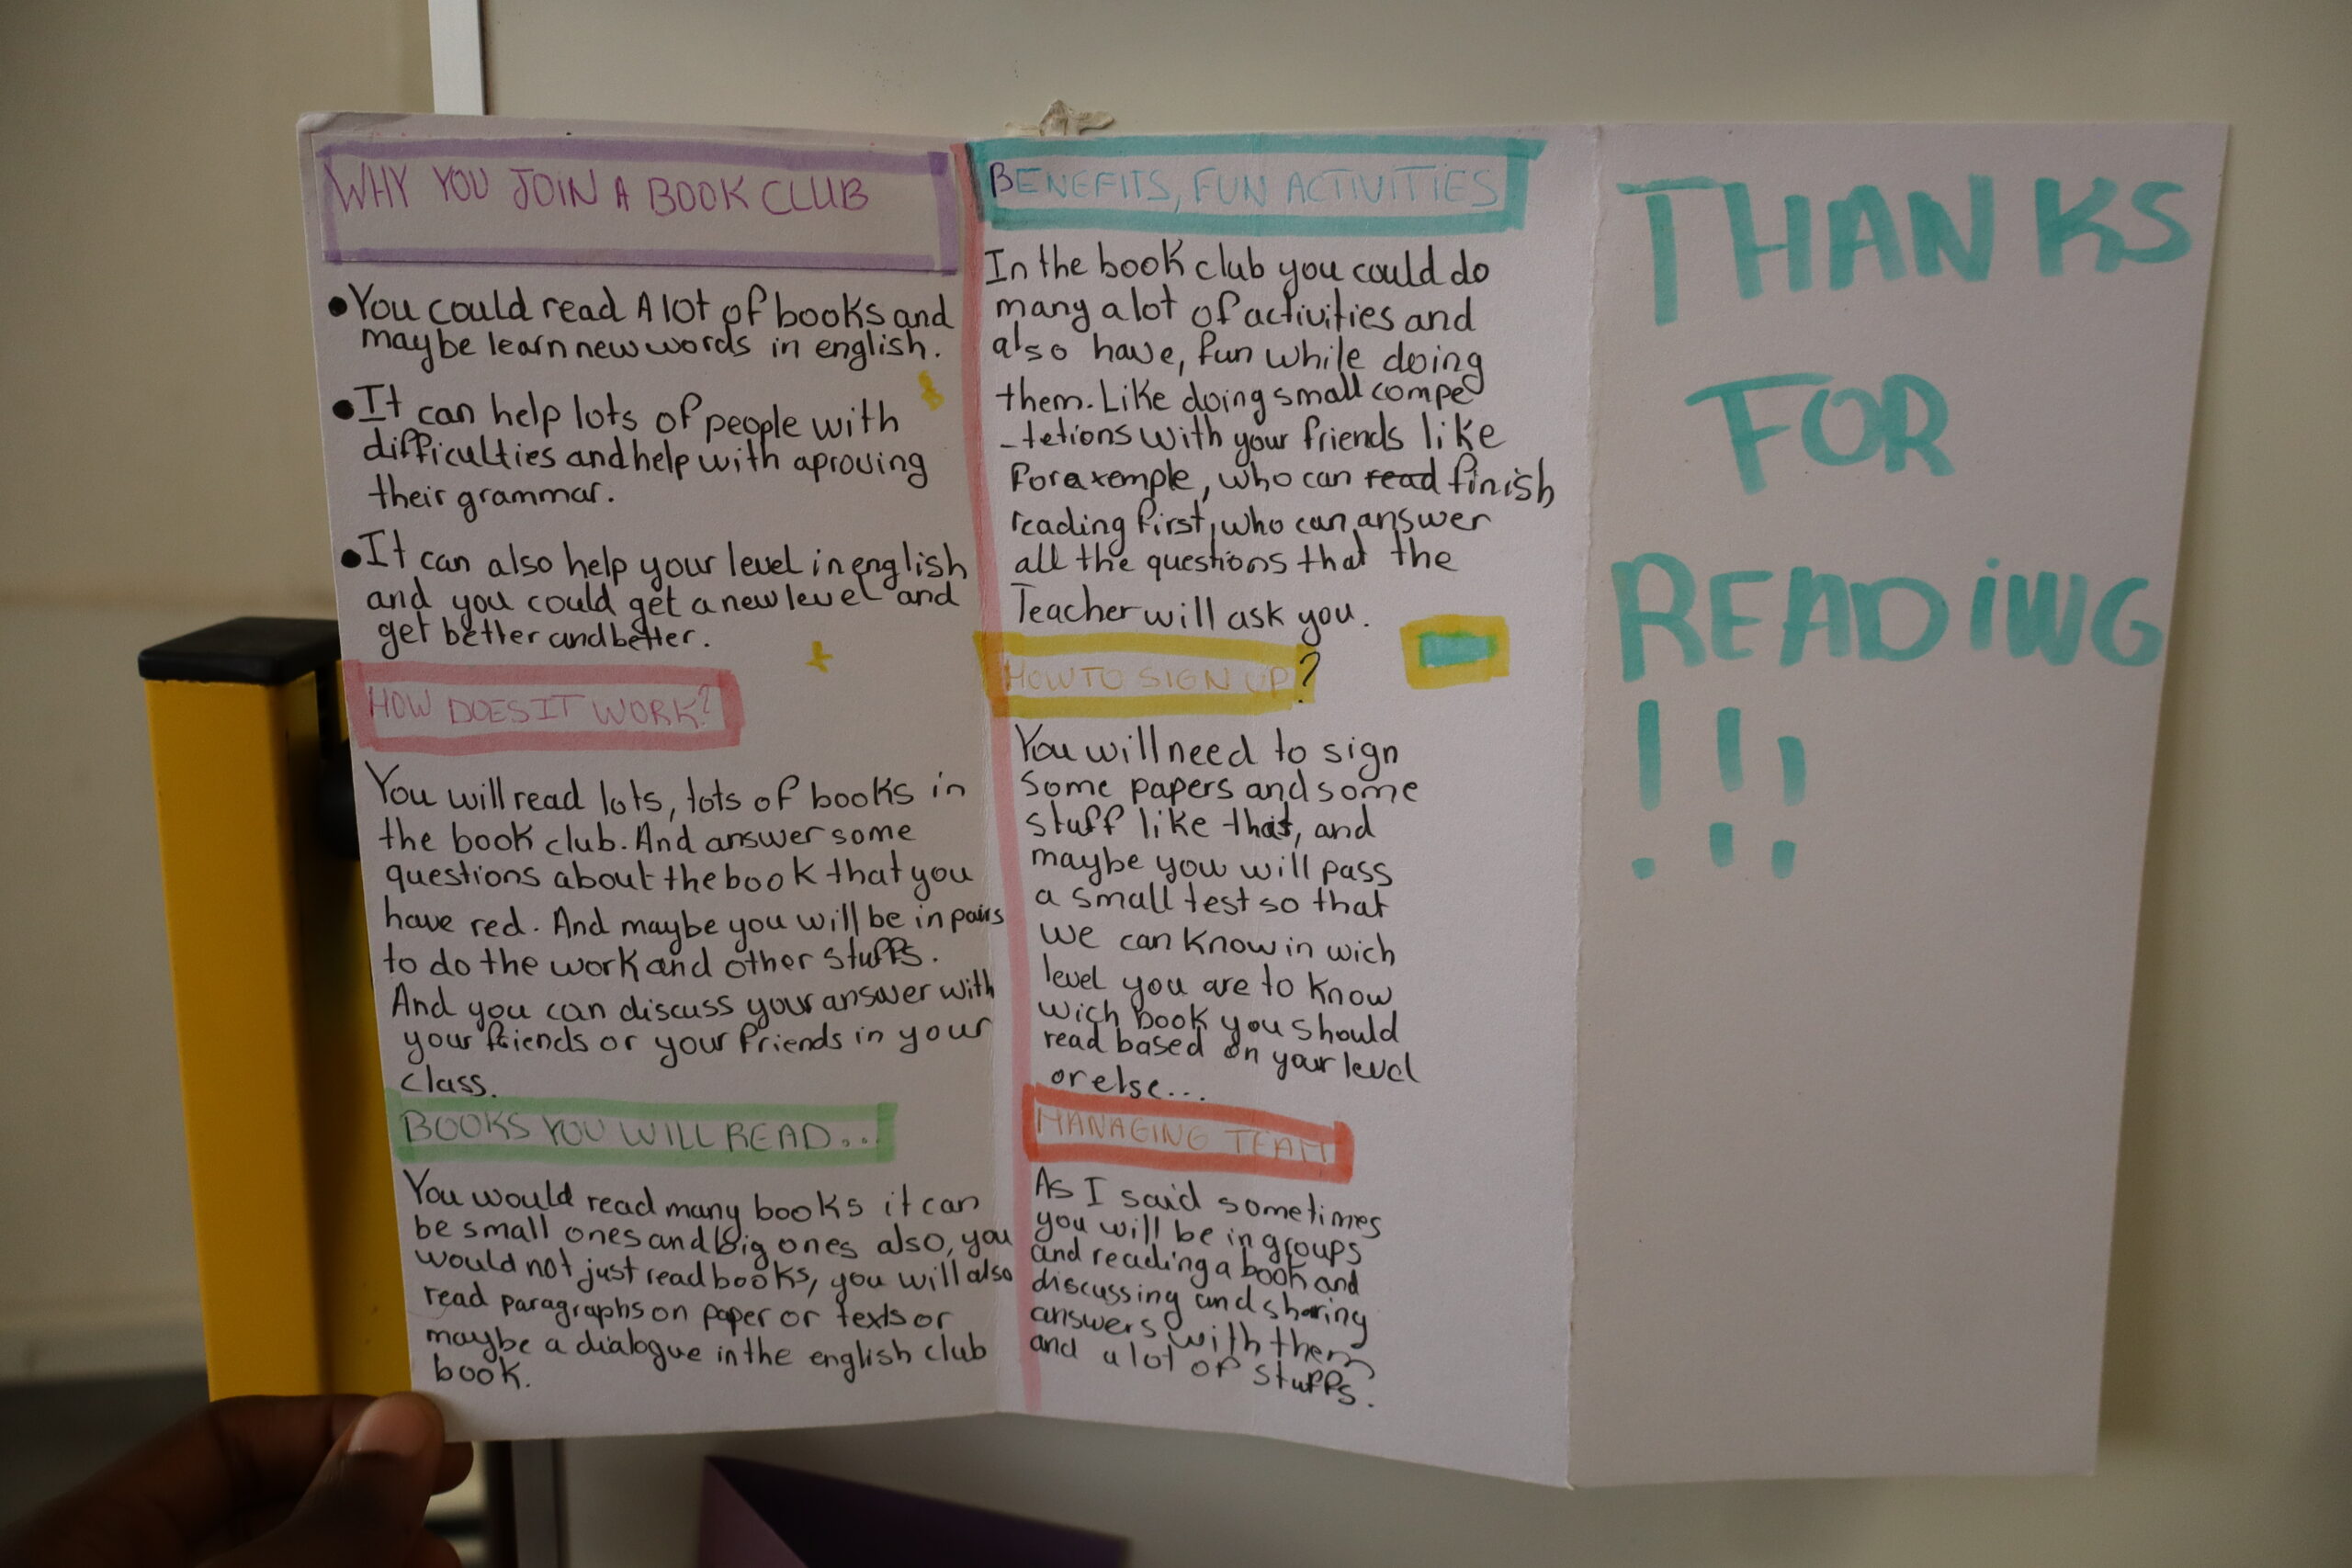 WHY YOU JOIN A BOOK CLUB
• You could read A lot of books and
maybe learn new words in english.
• It can help lots of people with
difficulties and help with aproving
their grammar.
• It can also help your level in english
and you could get a new level and
get better and better.
HOW DOES IT WORK?
You will read lots, lots of books in
the book club. And answer some
questions about the book that you
have red. And maybe you will be in pairs
to do the work and other stuffs.
And you can discuss your answer with
your friends or your friends in your
class.
BOOKS YOU WILL READ...
You would read many books it can
be small ones and big ones also, you
would not just read books, you will also
read paragraphs on paper or texts or
maybe a dialogue in the english club
book.
BENEFITS, FUN ACTIVITIES
In the book club you could do
many a lot of activities and
also have, fun while doing
them. Like doing small compe
-tetions with your friends like
for exemple, who can read finish
reading first, who can answer
all the questions that the
Teacher will ask you.
HOW TO SIGN UP?
You will need to sign
some papers and some
stuff like that, and
maybe you will pass
a small test so that
we can know in wich
level you are to know
wich book you should
read based on your level
or else...
MANAGING TEAM
As I said sometimes
you will be in groups
and reading a book and
discussing and sharing
answers with them
and a lot of stuffs.
THANKS
FOR
READING
!!!